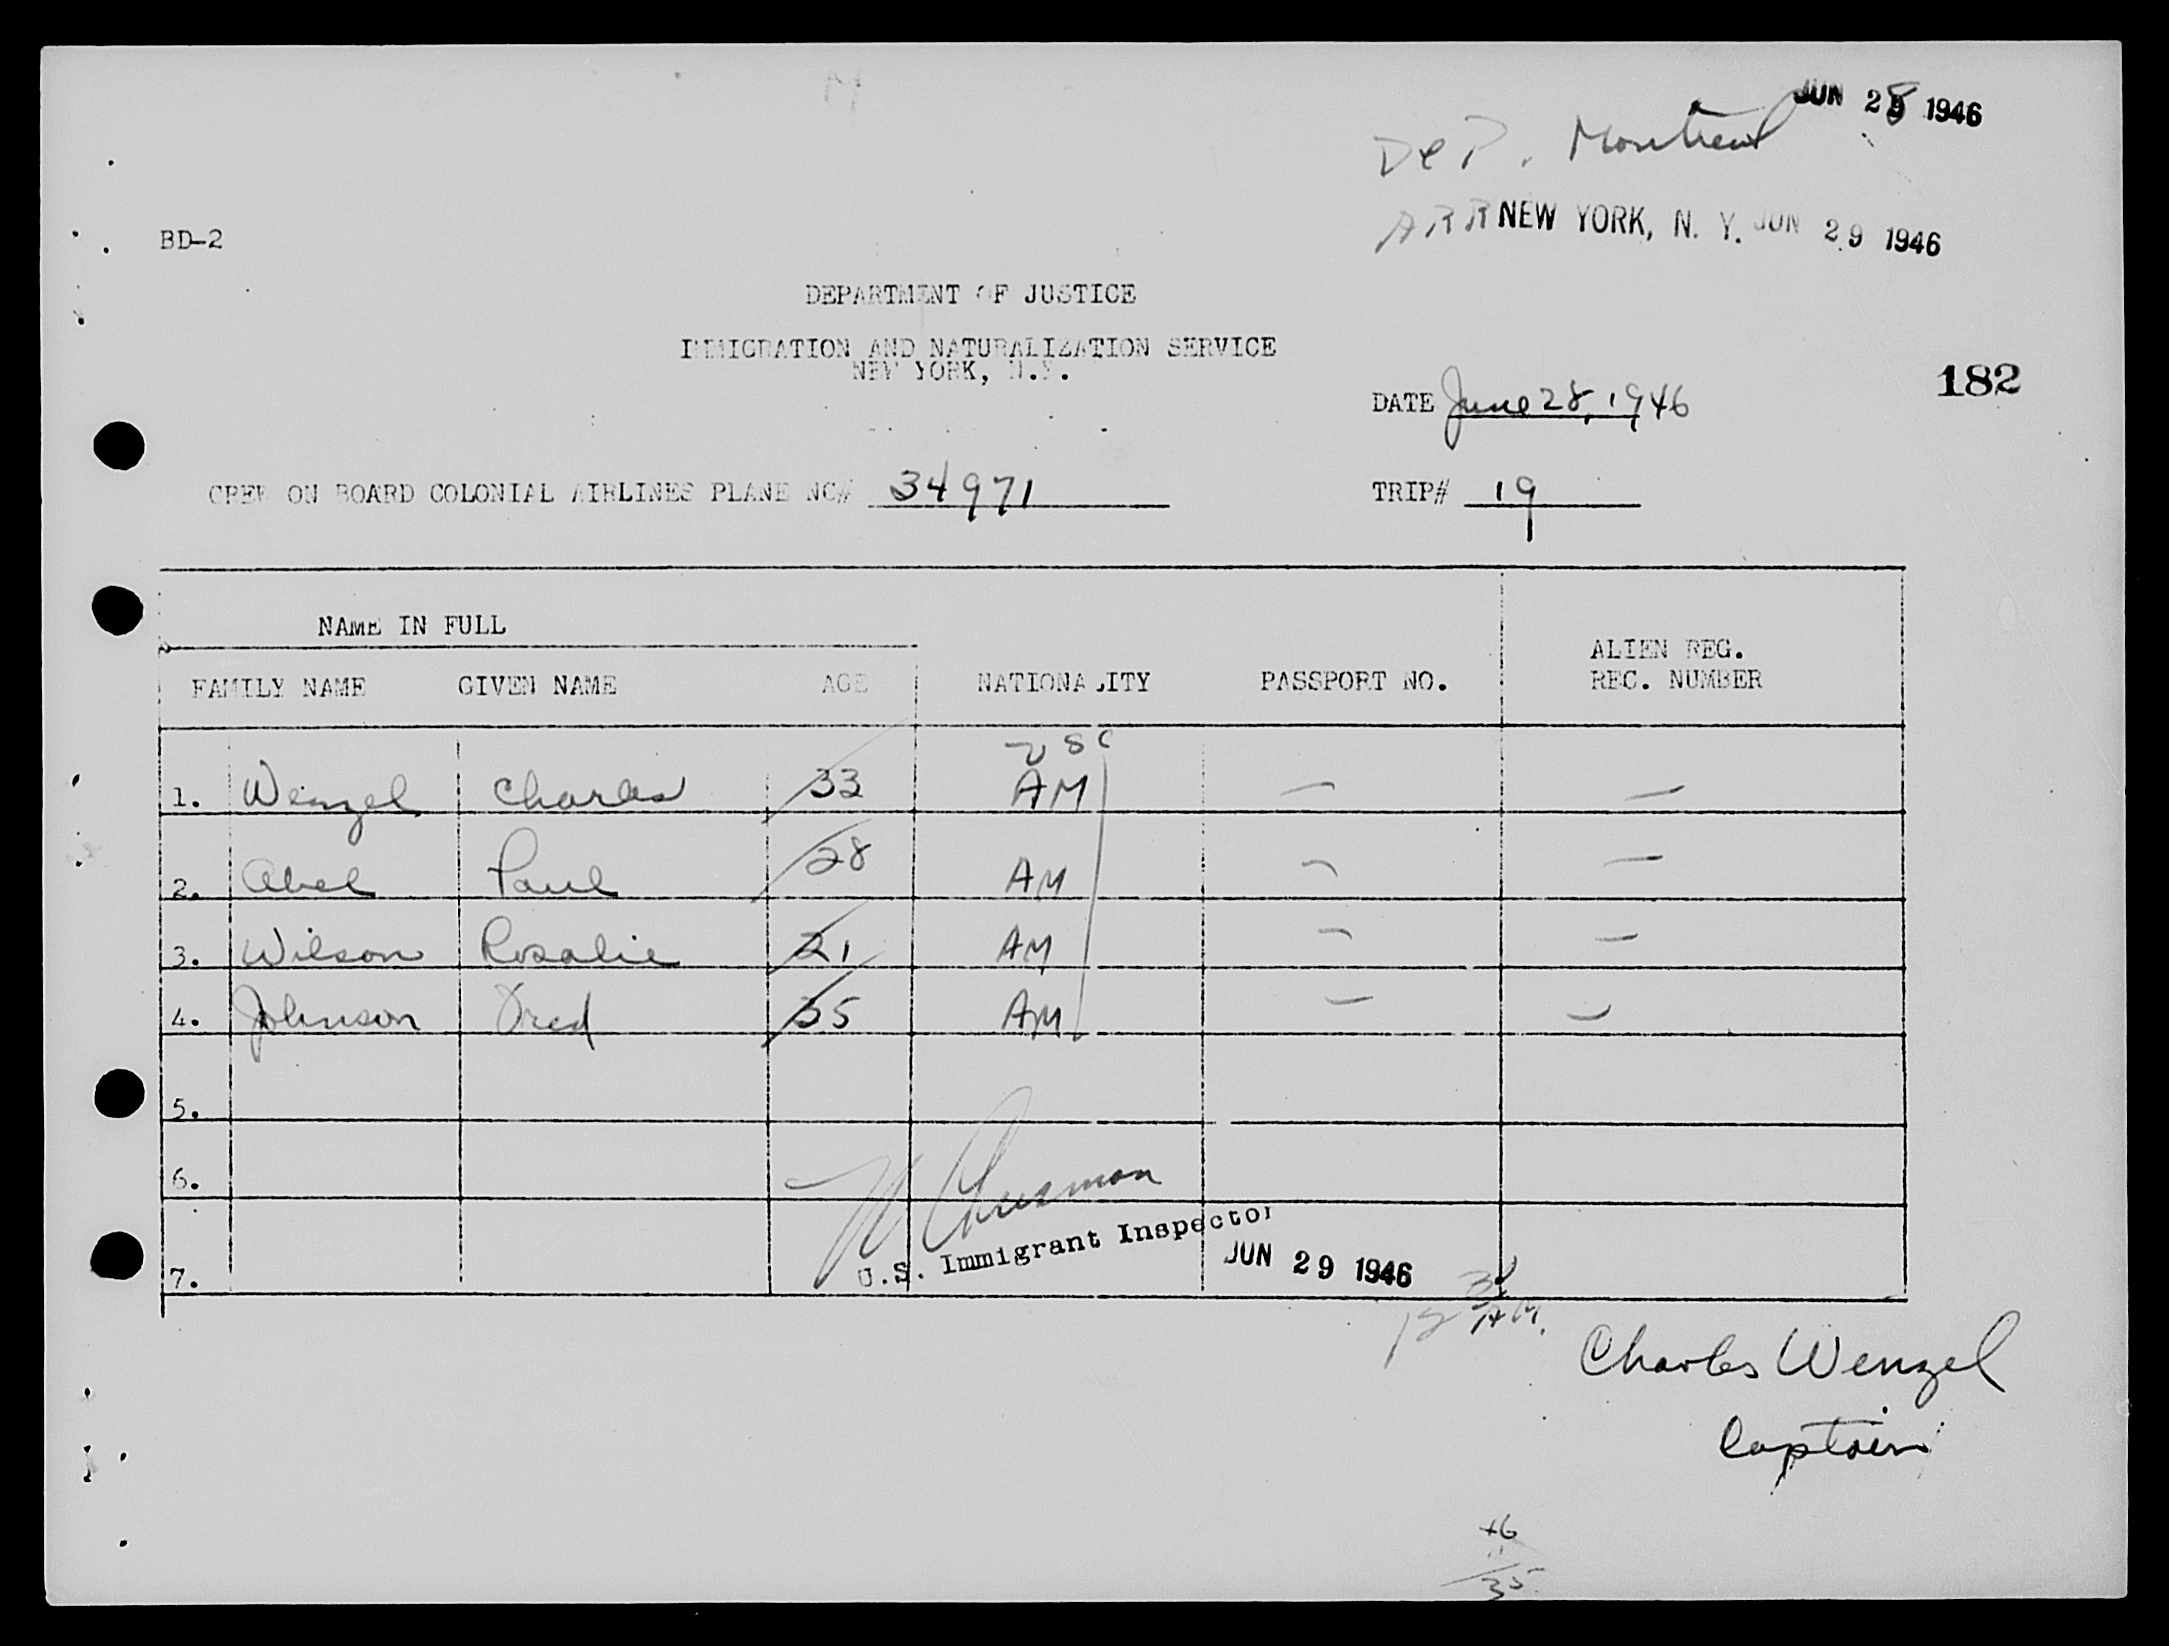 JUN 28 1946
DEP. Montreal
ARR NEW YORK, N. Y. JUN 29 1946
BD-2
DEPARTMENT OF JUSTICE
IMMIGRATION AND NATURALIZATION SERVICE
NEW YORK, N.Y.
182
DATE June 28, 1946
CREW ON BOARD COLONIAL AIRLINES PLANE NC# 34971 TRIP# 19
NAME IN FULL
ALIEN REG.
FAMILY NAME GIVEN NAME AGE NATIONALITY PASSPORT NO. REC. NUMBER
USC
1. Wenzel Charles 33 AM — —
2. Abel Paul 28 AM — —
3. Wilson Rosalie 21 AM — —
4. Johnson 35 AM — —
5.
6.
U.S. Immigrant Inspector
JUN 29 1946
7.
12 AM.
Charles Wenzel
Captain
46
35